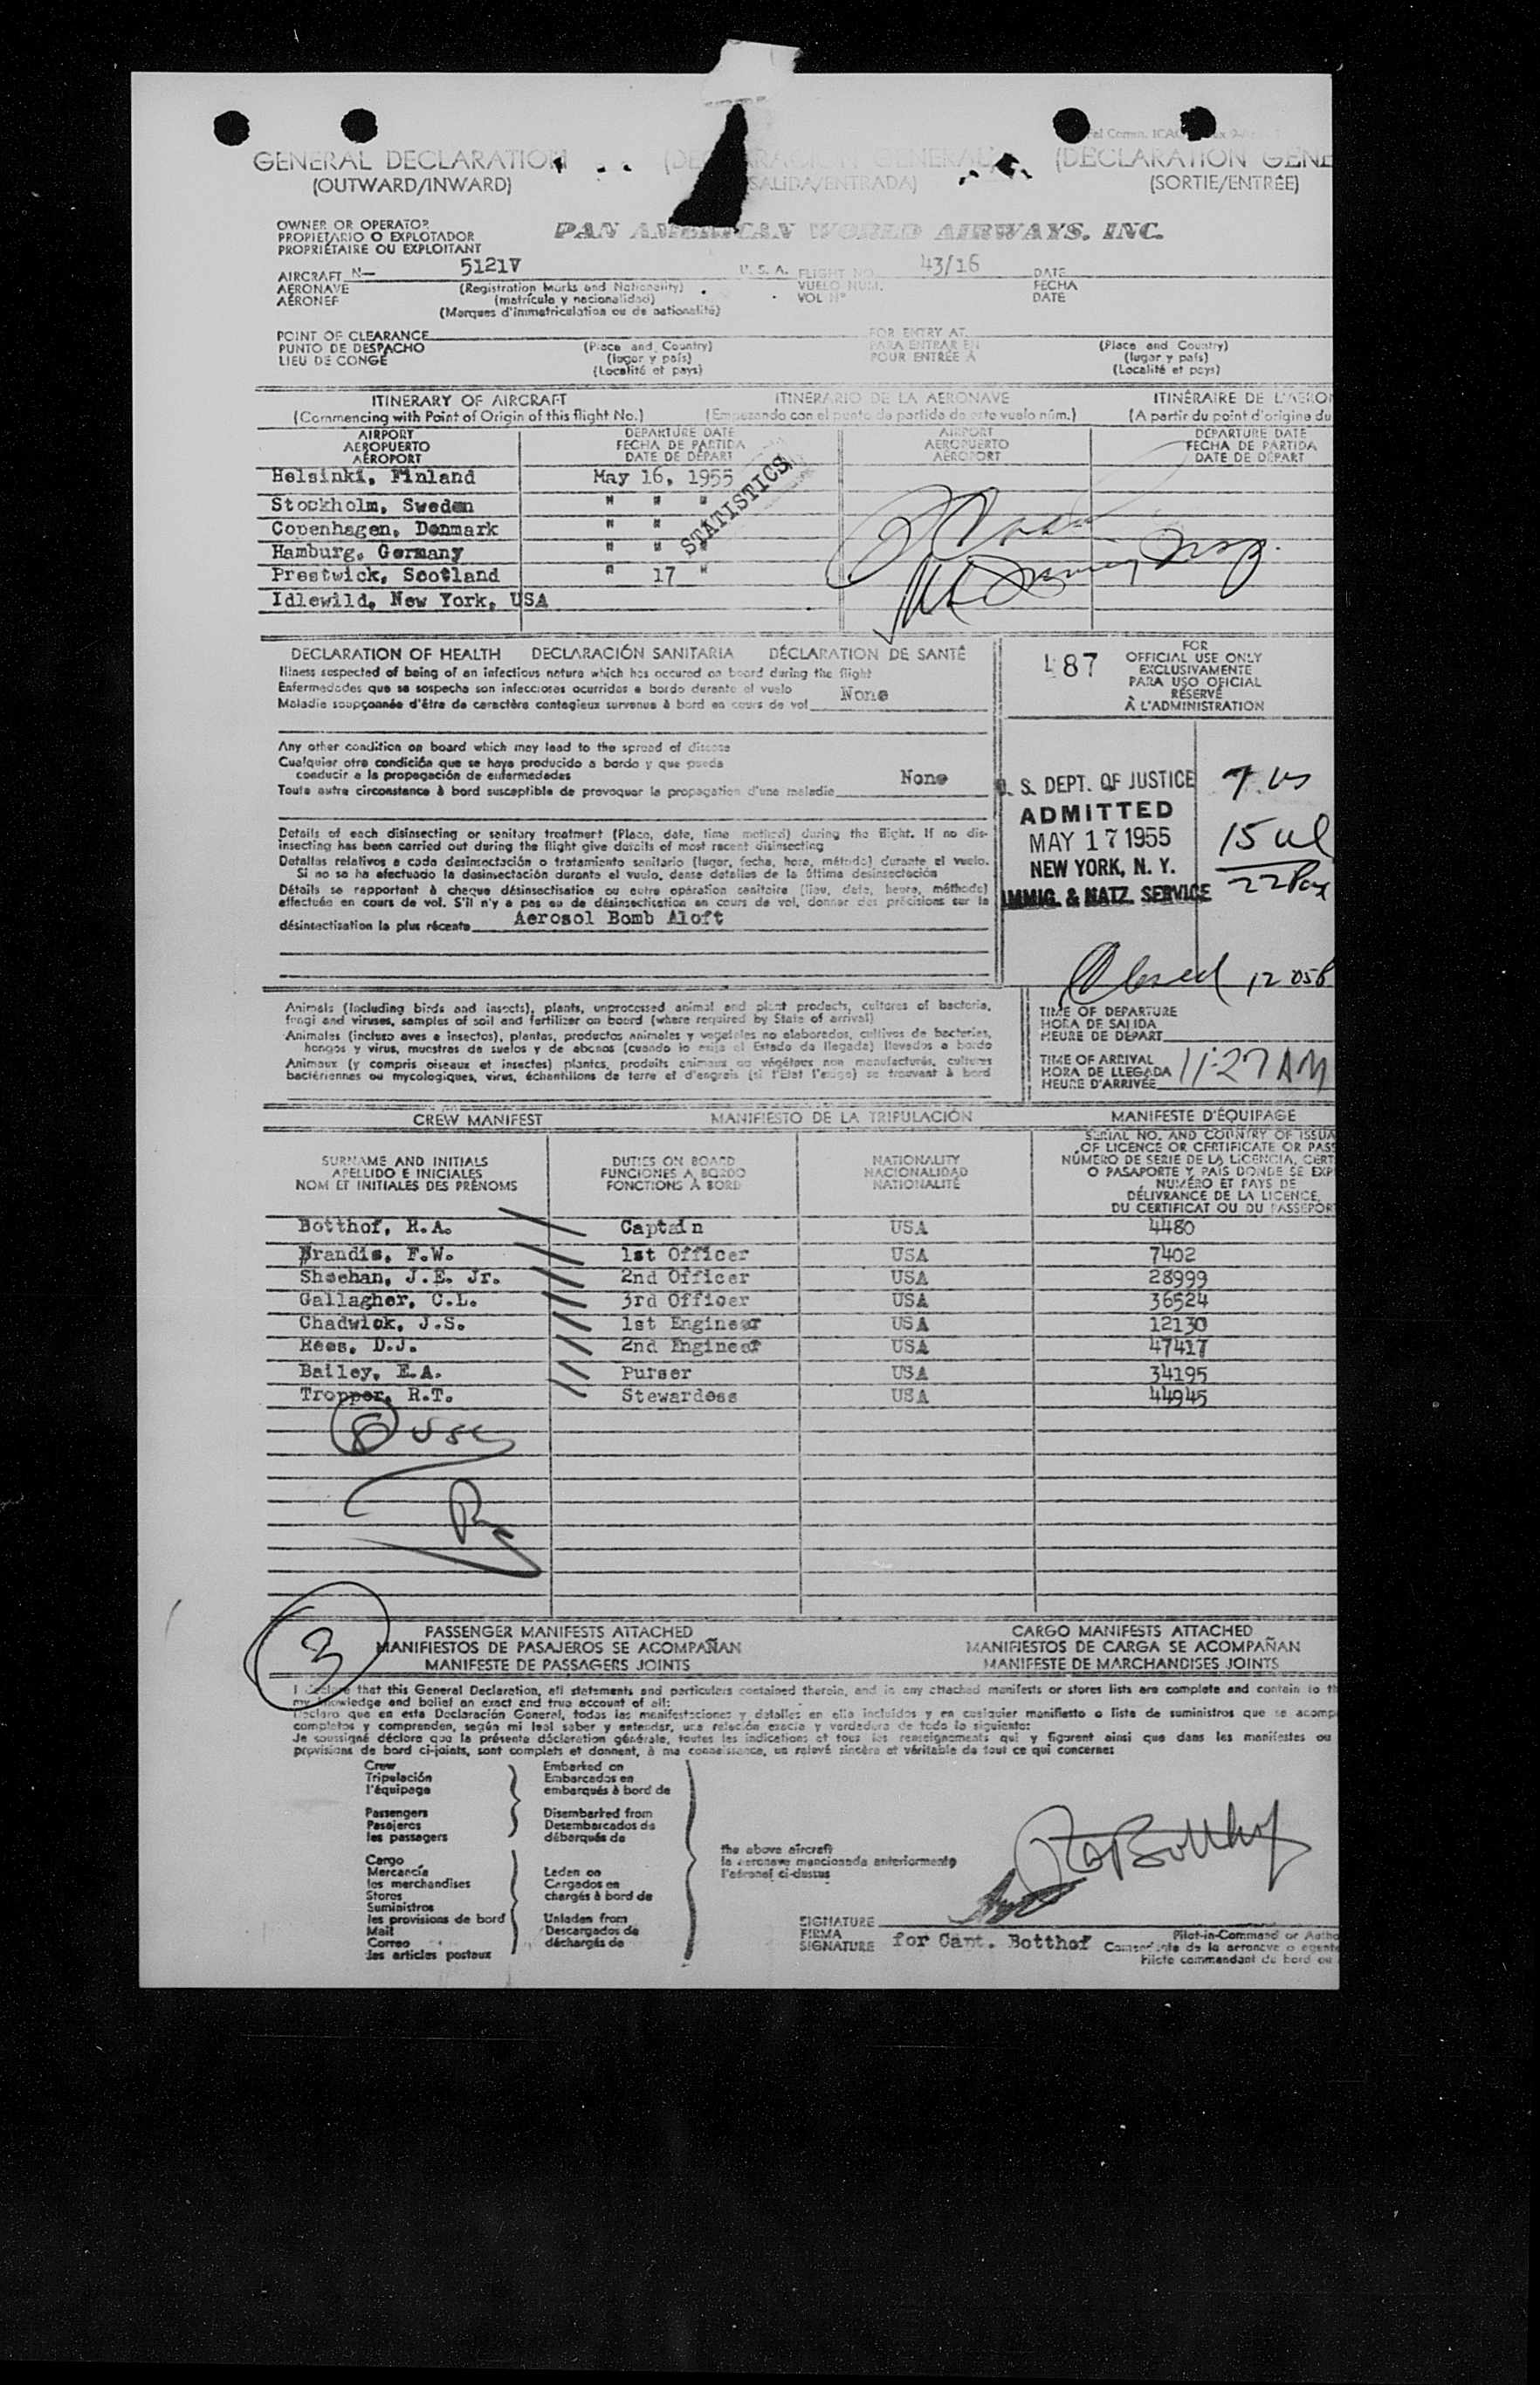 GENERAL DECLARATION
(OUTWARD/INWARD)
SALIDA/ENTRADA)
(DECLARATION GENE
(SORTIE/ENTRÉE)
OWNER OR OPERATOR
PROPIETARIO O EXPLOTADOR
PROPRIÉTAIRE OU EXPLOITANT
PAN AMERICAN WORLD AIRWAYS, INC.
AIRCRAFT N— 5121V U. S. A. FLIGHT NO. 43/16 DATE
AERONAVE (Registration Marks and Nationality) VUELO NUM. FECHA
AÉRONEF (matrícula y nacionalidad) VOL Nº DATE
(Marques d'immatriculation ou de nationalité)
POINT OF CLEARANCE FOR ENTRY AT
PUNTO DE DESPACHO (Place and Country) PARA ENTRAR EN (Place and Country)
LIEU DE CONGÉ (lugar y país) POUR ENTRÉE À (lugar y país)
(Localité et pays) (Localité et pays)
ITINERARY OF AIRCRAFT ITINERARIO DE LA AERONAVE ITINÉRAIRE DE L'AÉRON
(Commencing with Point of Origin of this flight No.) (Empezando con el punto de partida de este vuelo núm.) (A partir du point d'origine du
AIRPORT DEPARTURE DATE AIRPORT DEPARTURE DATE
AEROPUERTO FECHA DE PARTIDA AEROPUERTO FECHA DE PARTIDA
AÉROPORT DATE DE DÉPART AÉROPORT DATE DE DÉPART
Helsinki, Finland May 16, 1955
Stockholm, Sweden " " "
Copenhagen, Denmark " " "
Hamburg, Germany " " "
Prestwick, Scotland " 17 "
Idlewild, New York, USA
STATISTICS
DECLARATION OF HEALTH DECLARACIÓN SANITARIA DÉCLARATION DE SANTÉ
Illness suspected of being of an infectious nature which has occured on board during the flight
Enfermedades que se sospecha son infecciosas ocurridas a bordo durante el vuelo
Maladie soupçonnée d'être de caractère contagieux survenue à bord en cours de vol None
Any other condition on board which may lead to the spread of disease
Cualquier otra condición que se haya producido a bordo y que pueda
conducir a la propagación de enfermedades
Toute autre circonstance à bord susceptible de provoquer la propagation d'une maladie None
Details of each disinsecting or sanitary treatment (Place, date, time method) during the flight. If no dis-
insecting has been carried out during the flight give details of most recent disinsecting
Detallas relativos a cada desinsectación o tratamiento sanitario (lugar, fecha, hora, método) durante el vuelo.
Si no se ha efectuado la desinsectación durante el vuelo, dense detalles de la última desinsectación
Détails se rapportant à cheque désinsectisation ou autre opération sanitaire (lieu, date, heure, méthode)
effectuée en cours de vol. S'il n'y a pas eu de désinsectisation en cours de vol, donner des précisions sur la
désinsectisation la plus récente Aerosol Bomb Aloft
487
FOR
OFFICIAL USE ONLY
EXCLUSIVAMENTE
PARA USO OFICIAL
RÉSERVÉ
À L'ADMINISTRATION
U. S. DEPT. OF JUSTICE
ADMITTED
MAY 17 1955
NEW YORK, N. Y.
IMMIG. & NATZ. SERVICE
7 us
15 al
22 Pax
Closed 12 05P
Animals (Including birds and insects), plants, unprocessed animal and plant products, cultures of bacteria,
fungi and viruses, samples of soil and fertilizer on board (where required by State of arrival)
Animales (incluso aves e insectos), plantas, productos animales y vegetales no elaborados, cultivos de bacterias,
hongos y virus, muestras de suelos y de abonos (cuando lo exija el Estado de llegada) llevados a bordo
Animaux (y compris oiseaux et insectes) plantes, produits animaux ou végétaux non manufacturés, cultures
bactériennes ou mycologiques, virus, échantillons de terre et d'engrais (si l'Etat l'exige) se trouvant à bord
TIME OF DEPARTURE
HORA DE SALIDA
HEURE DE DÉPART
TIME OF ARRIVAL
HORA DE LLEGADA
HEURE D'ARRIVÉE 11:27 AM
CREW MANIFEST MANIFIESTO DE LA TRIPULACIÓN MANIFESTE D'ÉQUIPAGE
SURNAME AND INITIALS
APELLIDO E INICIALES
NOM ET INITIALES DES PRÉNOMS
DUTIES ON BOARD
FUNCIONES A BORDO
FONCTIONS À BORD
NATIONALITY
NACIONALIDAD
NATIONALITÉ
SERIAL NO. AND COUNTRY OF ISSUA
OF LICENCE OR CERTIFICATE OR PASS
NÚMERO DE SERIE DE LA LICENCIA, CERT
O PASAPORTE Y PAÍS DONDE SE EXP
NUMÉRO ET PAYS DE
DÉLIVRANCE DE LA LICENCE,
DU CERTIFICAT OU DU PASSEPOR
Botthof, R.A. Captain USA 4480
Brandis, F.W. 1st Officer USA 7402
Sheehan, J.E. Jr. 2nd Officer USA 28999
Gallagher, C.L. 3rd Officer USA 36524
Chadwick, J.S. 1st Engineer USA 12130
Rees, D.J. 2nd Engineer USA 47417
Bailey, E.A. Purser USA 34195
Tropper, R.T. Stewardess USA 44945
8 USC
3
PASSENGER MANIFESTS ATTACHED CARGO MANIFESTS ATTACHED
MANIFIESTOS DE PASAJEROS SE ACOMPAÑAN MANIFIESTOS DE CARGA SE ACOMPAÑAN
MANIFESTE DE PASSAGERS JOINTS MANIFESTE DE MARCHANDISES JOINTS
I declare that this General Declaration, all statements and particulars contained therein, and in any attached manifests or stores lists are complete and contain to th
my knowledge and belief an exact and true account of all:
Declaro que en esta Declaración General, todas las manifestaciones y detalles en ella incluidos y en cualquier manifiesto o lista de suministros que se acomp
completos y comprenden, según mi leal saber y entender, una relación exacta y verdadera de todo lo siguiente:
Je soussigné déclare que la présente déclaration générale, toutes les indications et tous les renseignements qui y figurent ainsi que dans les manifestes ou
provisions de bord ci-joints, sont complets et donnent, à ma connaissance, un relevé sincère et véritable de tout ce qui concerne:
Crew Embarked on
Tripulación Embarcados en
l'équipage embarqués à bord de
Passengers Disembarked from
Pasajeros Desembarcados de
les passagers débarqués de
Cargo
Mercancía Laden on
les merchandises Cargados en
Stores chargés à bord de
Suministros
les provisions de bord Unladen from
Mail Descargados de
Correo déchargés de
les articles postaux
the above aircraft
la aeronave mencionada anteriormente
l'aéronef ci-dessus
RABotthof
SIGNATURE
FIRMA
SIGNATURE for Capt. Botthof
Pilot-in-Command or Autho
Comandante de la aeronave o agente
Pilote commandant de bord ou